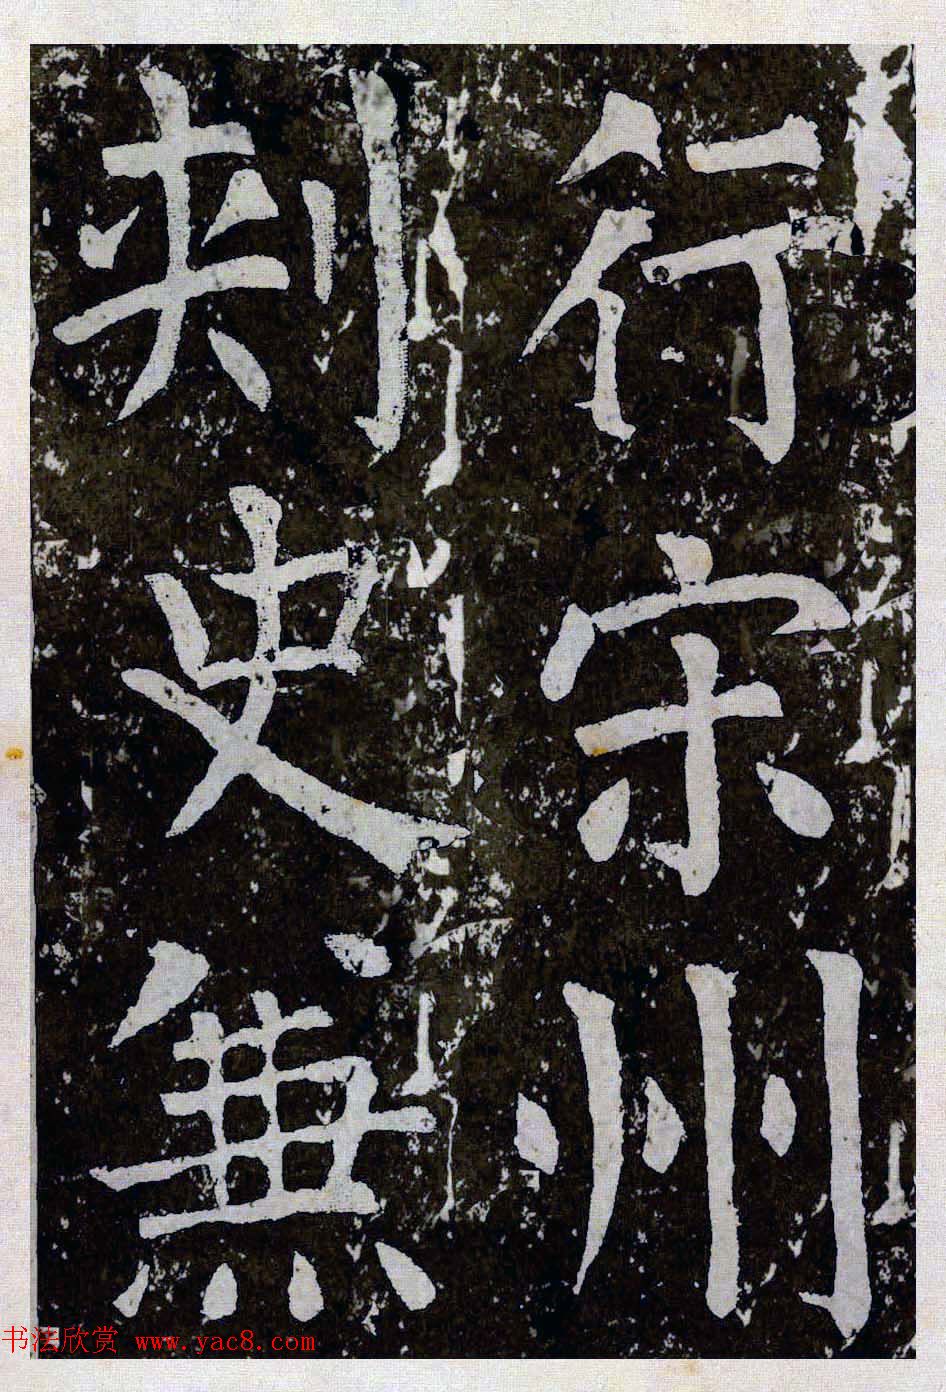 行宋州
刺史無
书法欣赏 www.yac8.com